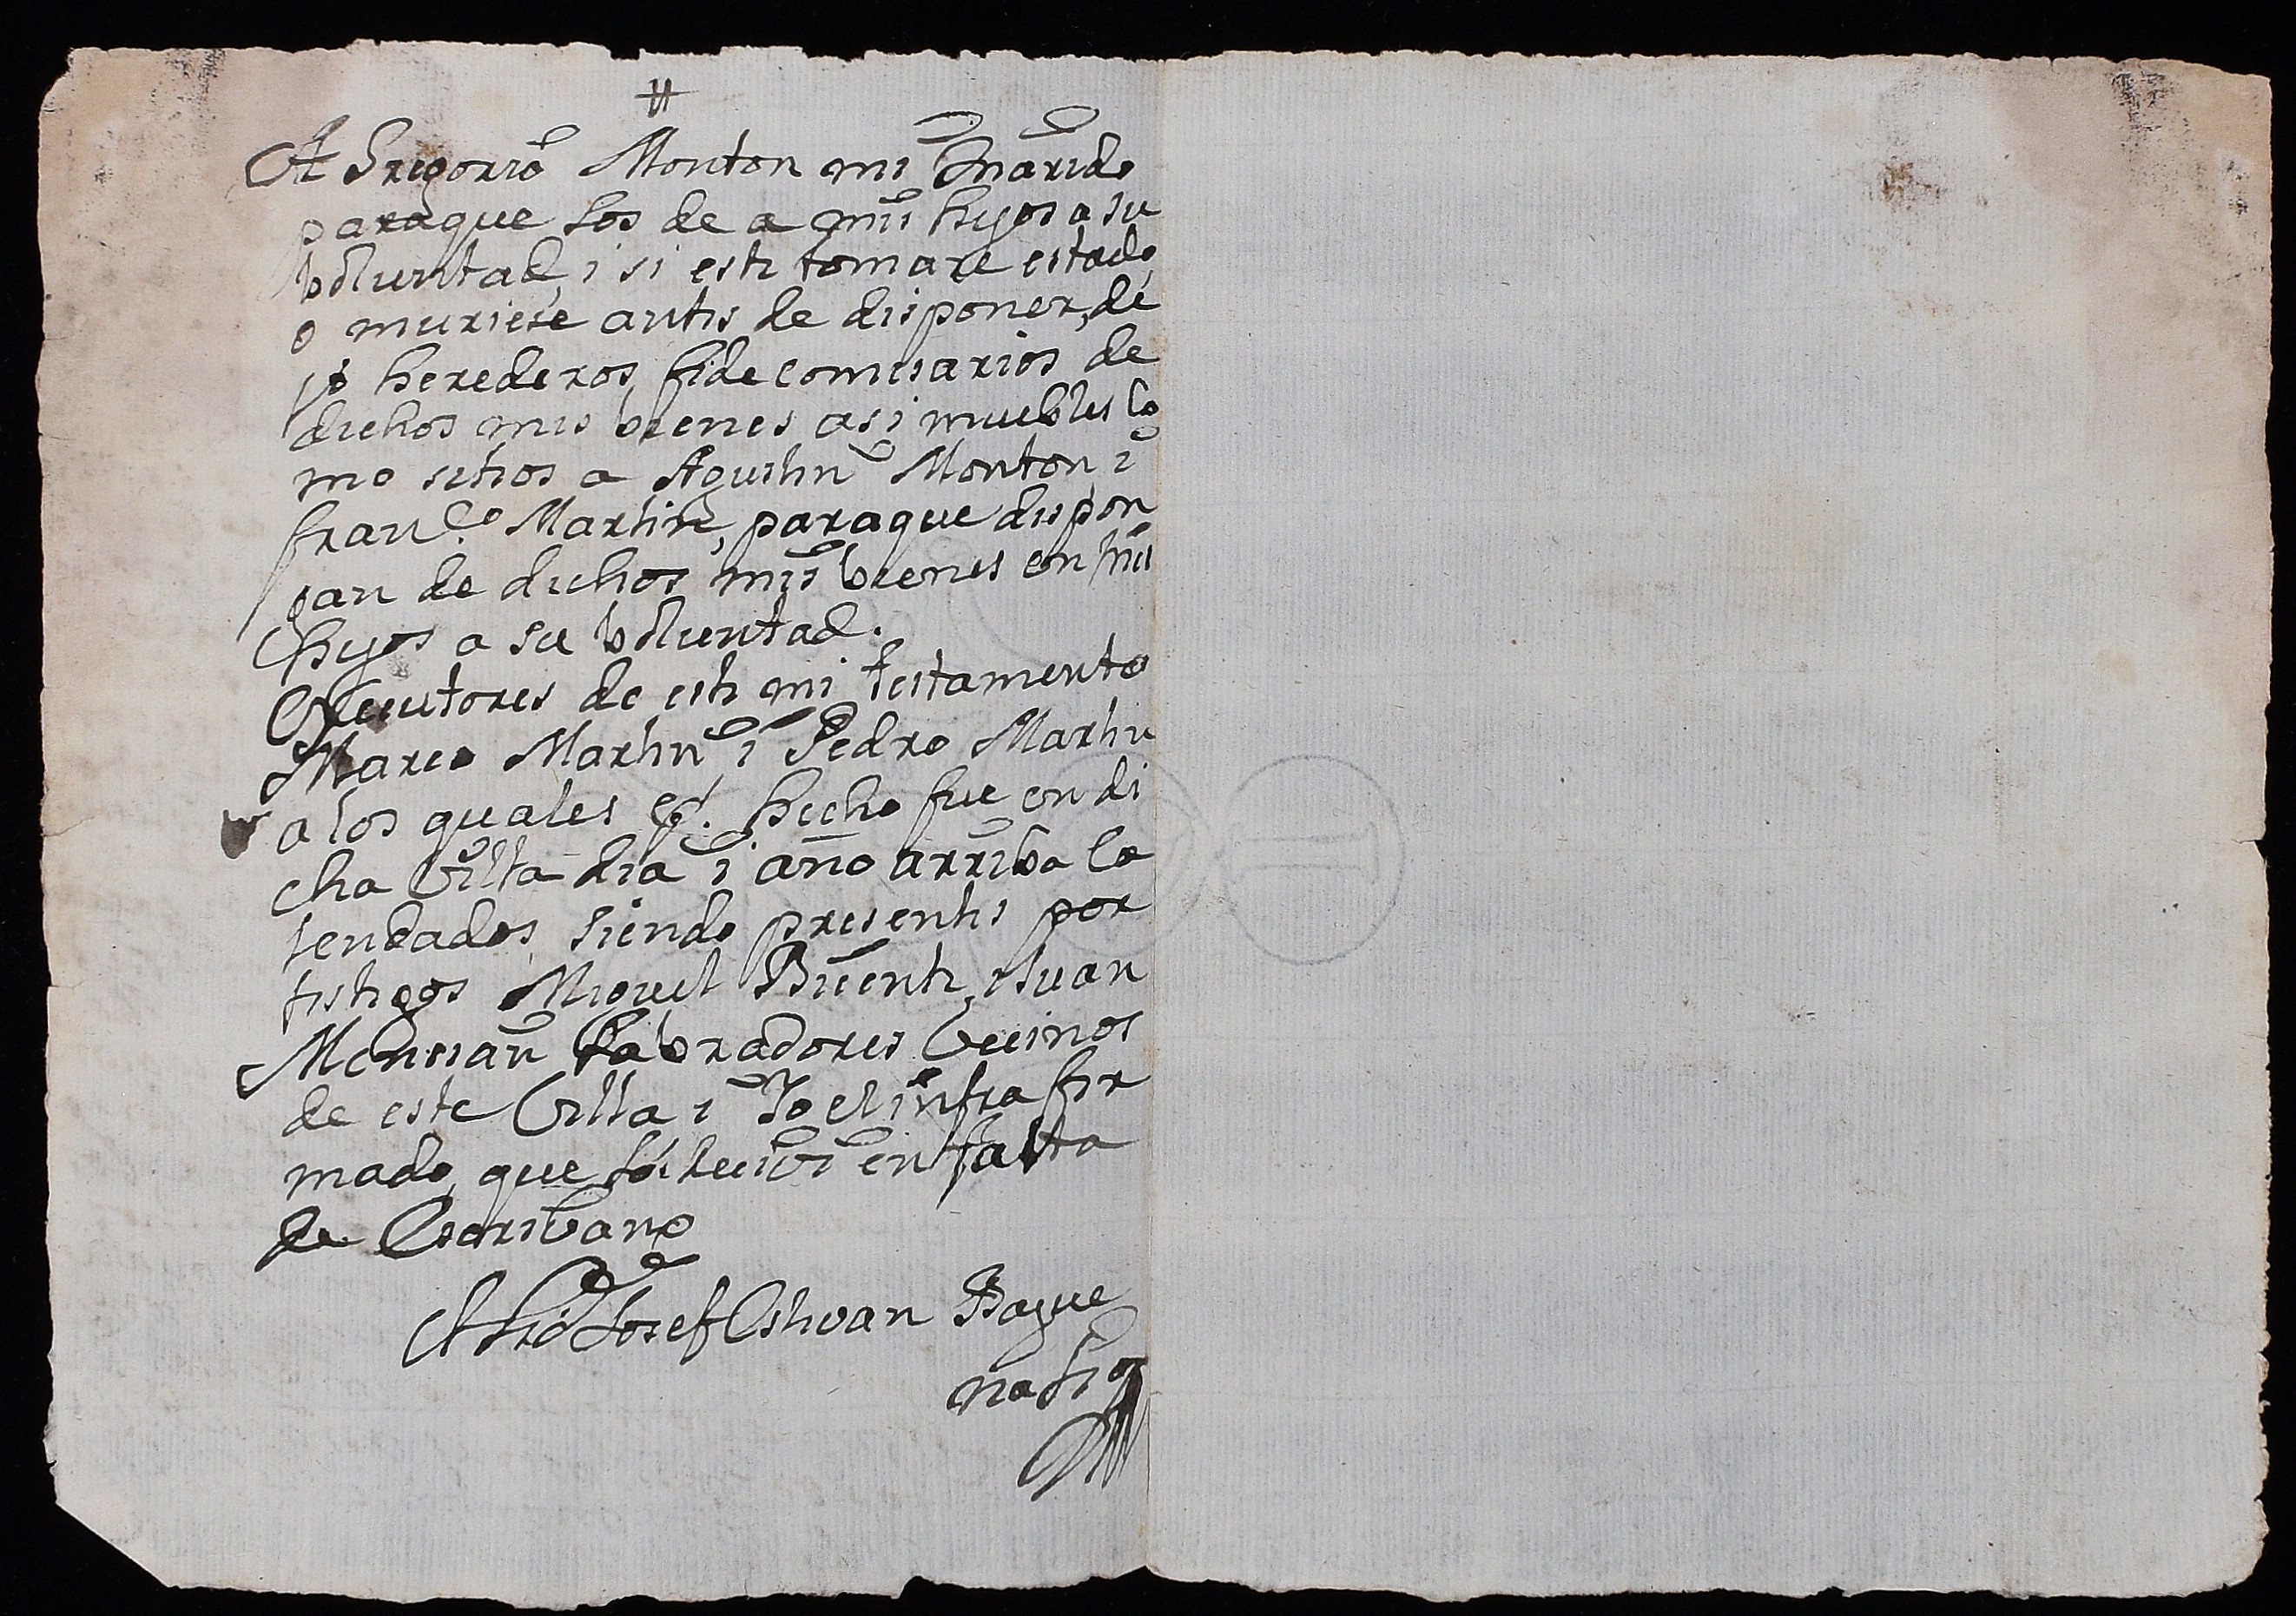 A Gregorio Monton mi marido
paraque los de a mis hijos a su
voluntad, i si este tomare estado,
o muriese antes de disponer, de
jo herederos fidecomisarios de
dichos mis bienes asi muebles co
mo sitios a Agustin Monton i
Fran.co Martin, paraque dispon
gan de dichos mis bienes en mis
hijos a su voluntad.
Ejecutores de este mi testamento
Marco Martin i Pedro Martin
a los quales &. hecho fue en di
cha Villa dia i año arriba ca
lendados siendo presentes por
testigos Miguel Juan
labradores vecinos
de este Villa i Yo el infra fir
mado, que lo recivi en falta
de Escribano
Josef Estevan